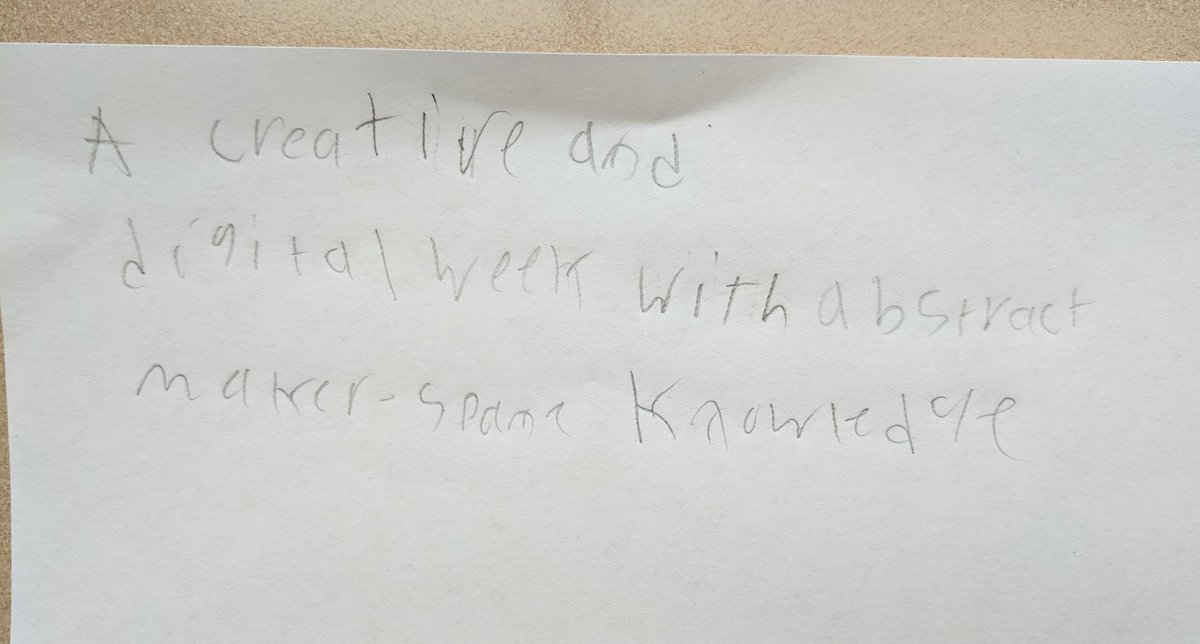 A creative and
digital week with abstract
maker-space knowledge